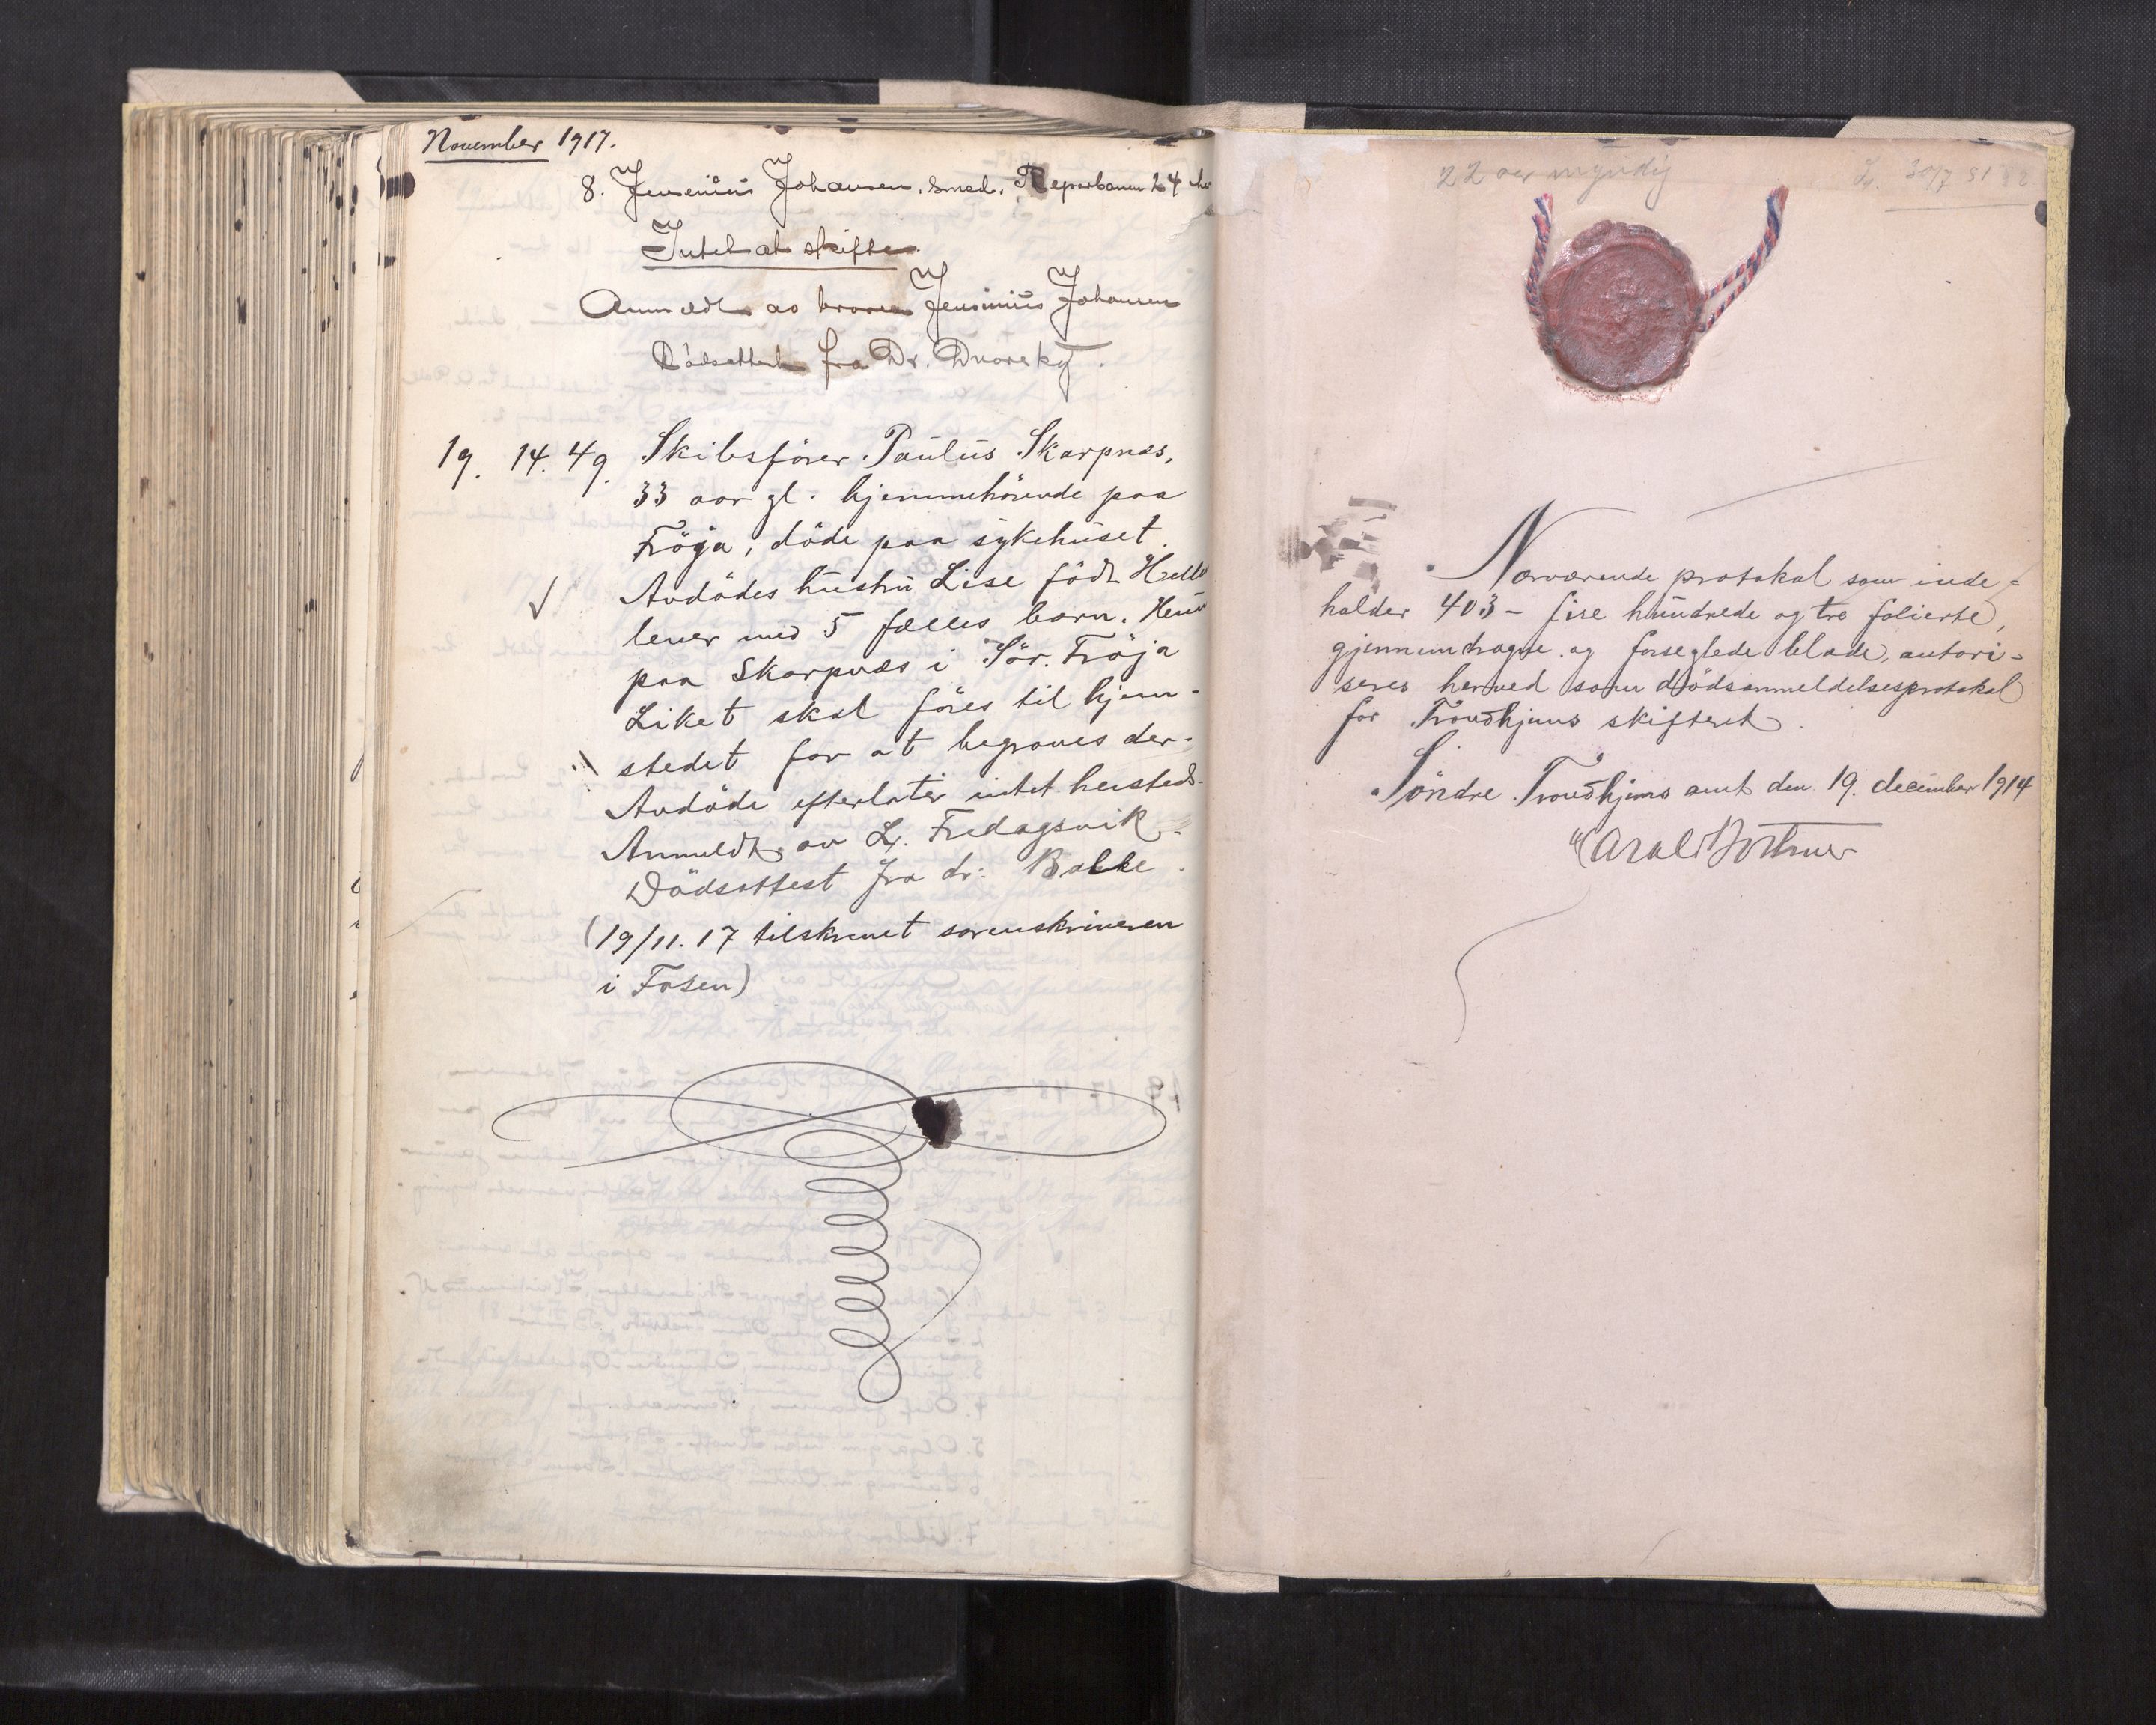 November 1917.
8. Jensenius Johansen, smed. Reperbanen 24 her
Intet at skifte.
Anmeldt av broren Jensenius Johansen
Dödsattest fra Dr. Dvorsky.
19. 14. 49. Skibsförer Paulus Skarpnes,
33 aar gl. hjemmehörende paa
Fröya, döde paa sykehuset.
Avdödes hustru Lise födt
lever med 5 fælles barn.
paa Skarpnes i Sör. Fröja
Liket skal föres til hjem-
stedet for at begraves der-
Avdöde efterlater intet hersteds.
Anmeldt av L. Fredagsvik.
Dödsattest fra dr. Balke.
(19/11.17 tilskrevet sorenskriveren
i Fosen)
22 aar myndig
Nærværende protokol som inde-
holder 403 - fire hundrede og tre folierte,
gjennemdragne og forseglede blade, autori-
seres herved som dödsanmeldelsesprotokol
for Trondhjems skifteret.
Söndre Trondhjems amt den 19. december 1914
Harald Bothner